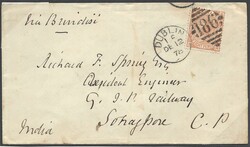 via Brindisi
DUBLIN
C
DE 12
78
186
Richard F. Spring Esq
Resident Engineer
G. I. P. Railway
Sohagpore
C. P
India